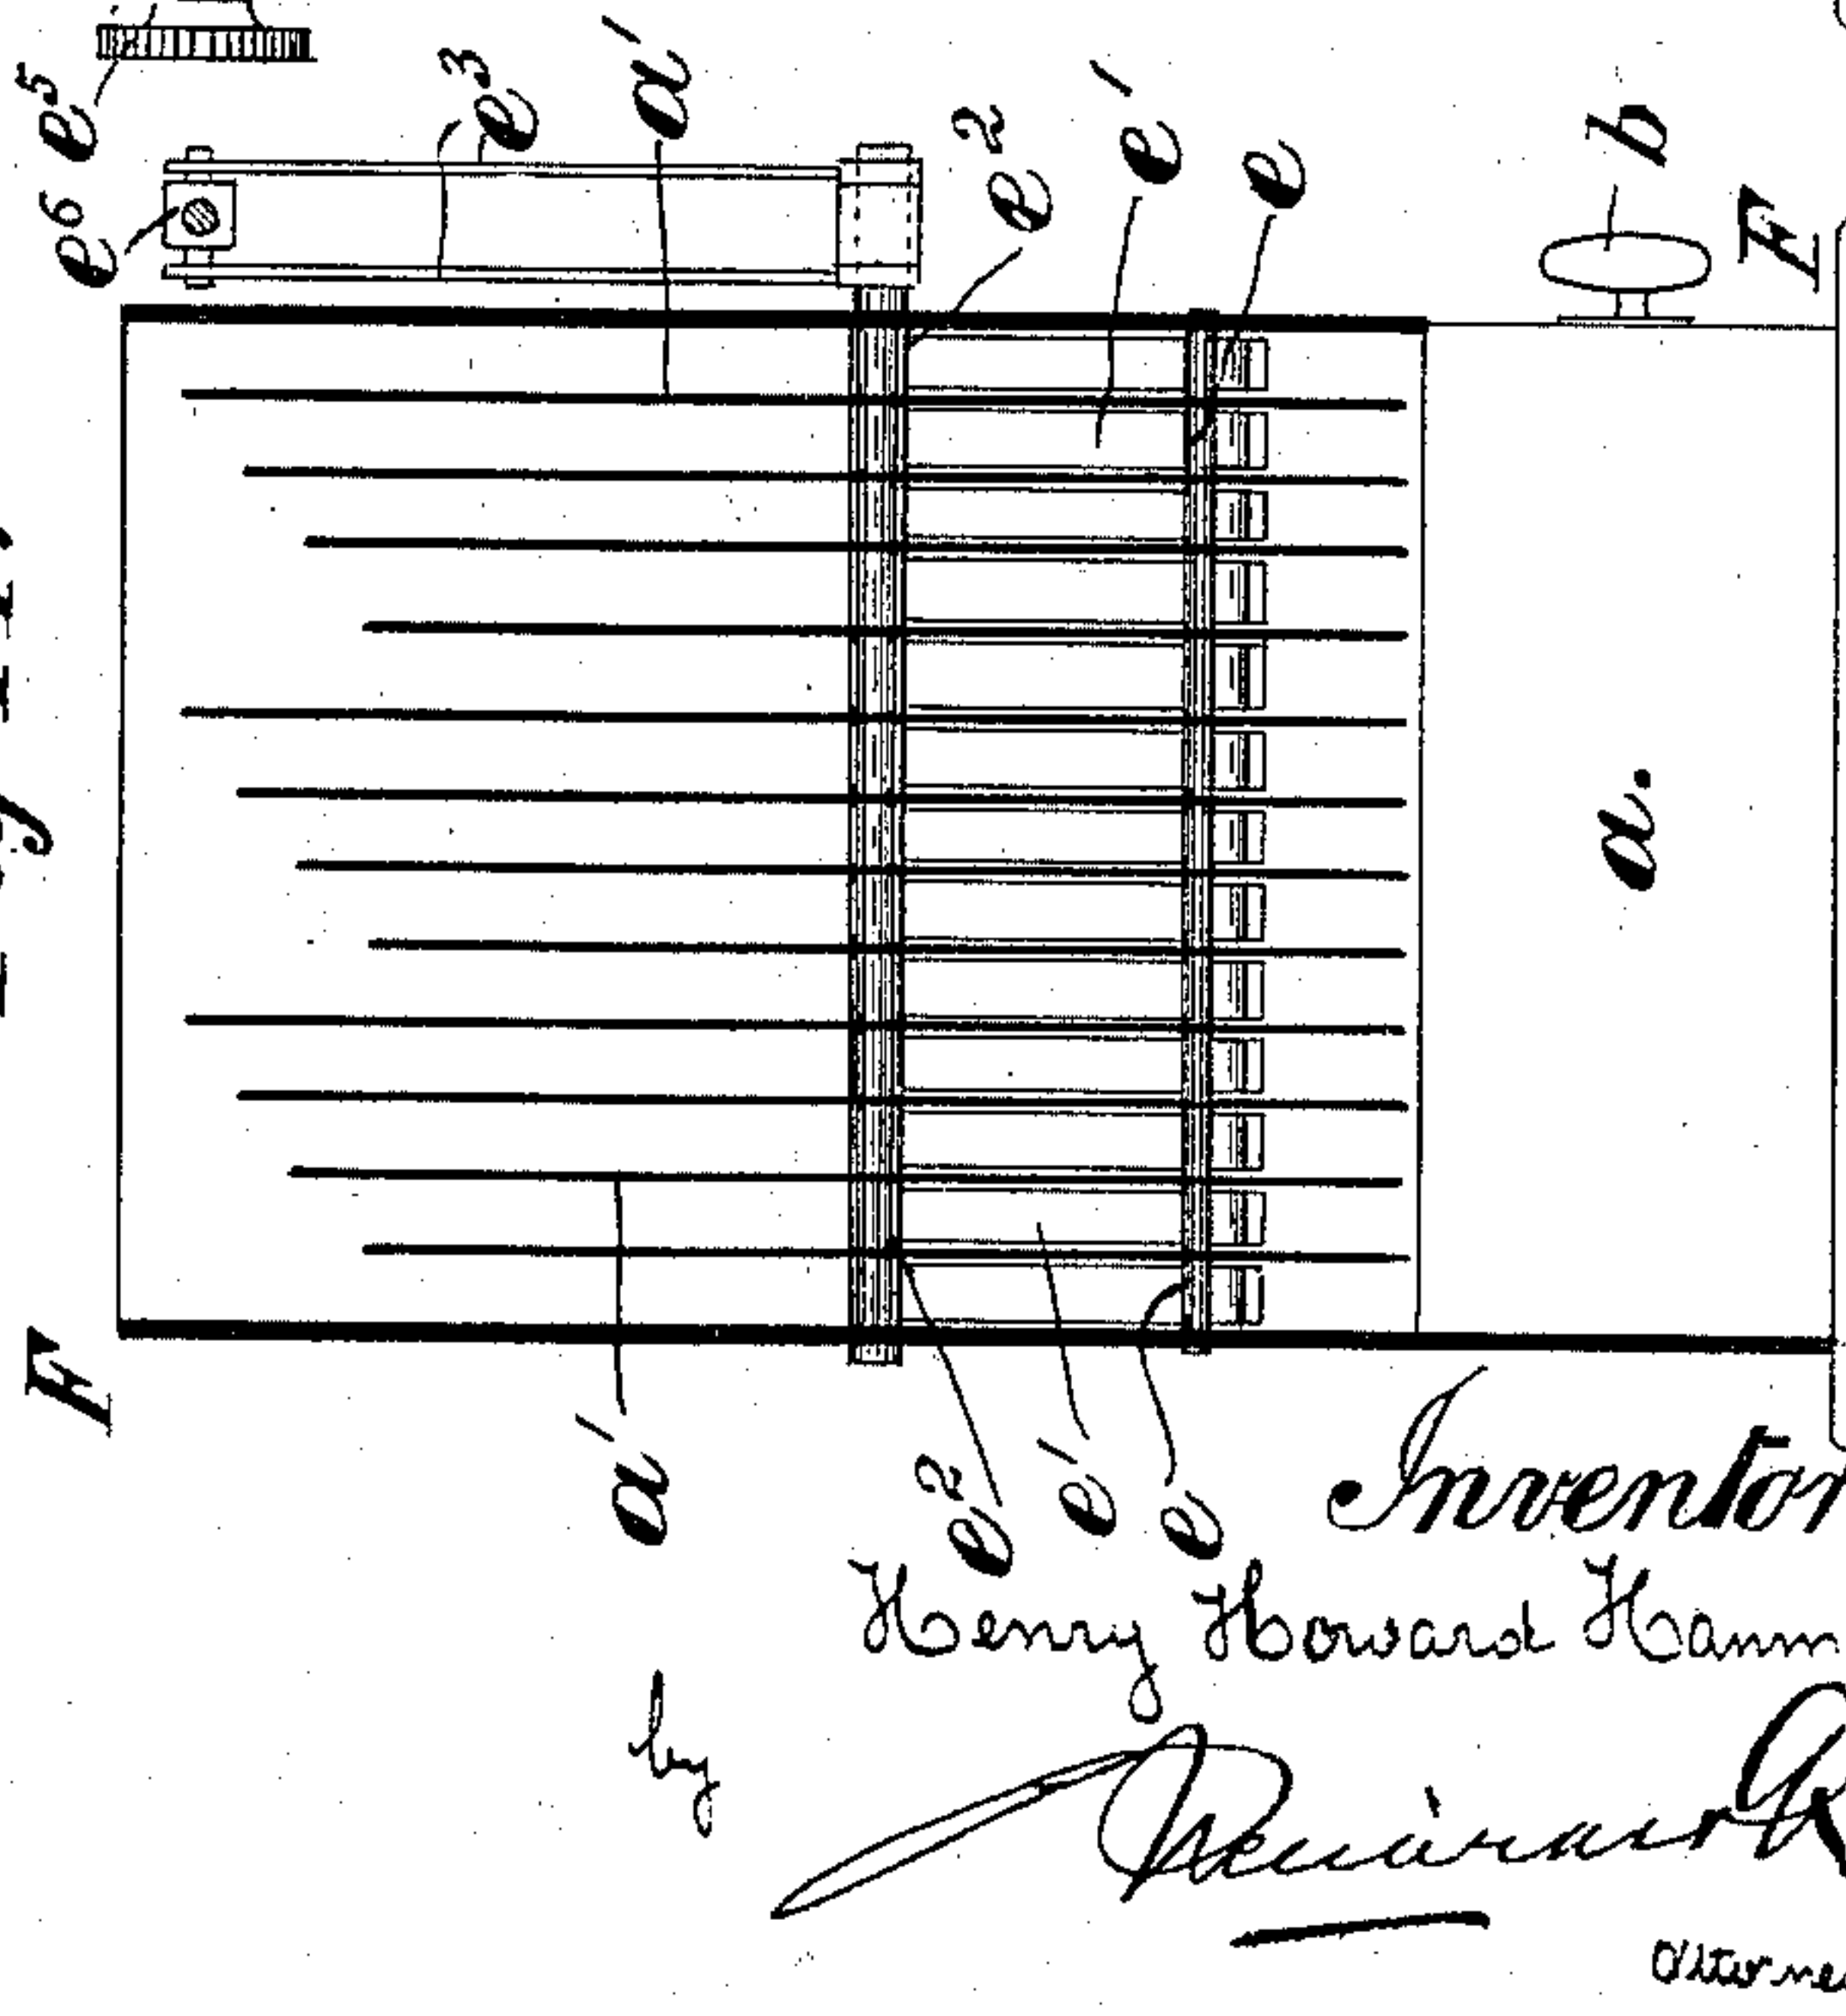 e⁵
e⁶
e³
a'
e²
e'
e
b
F
a.
F
a'
e²
e'
e
Inventor
Henry Howard Hamm
by